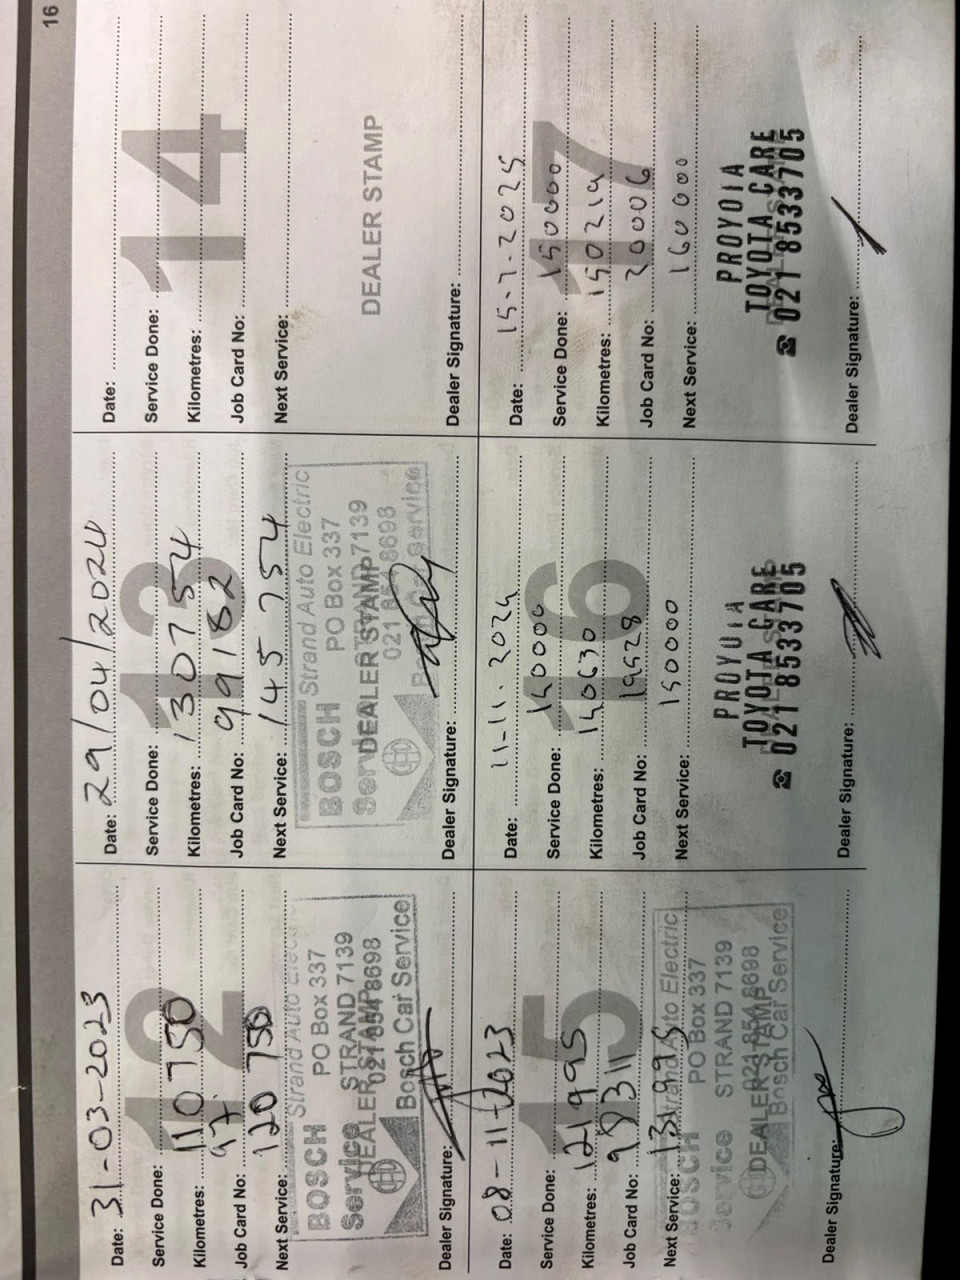 16
12
Date: 31-03-2023
Service Done:
Kilometres: 110 750
Job Card No:
Next Service: 120 750
BOSCH Strand Auto Electric
PO Box 337
Service STRAND 7139
DEALER STAMP
021 854 8698
Bosch Car Service
Dealer Signature:
13
Date: 29/04/2024
Service Done:
Kilometres: 130754
Job Card No: 99182
Next Service: 145 754
BOSCH Strand Auto Electric
PO Box 337
Service STRAND 7139
DEALER STAMP
021 854 8698
Bosch Car Service
Dealer Signature:
14
Date:
Service Done:
Kilometres:
Job Card No:
Next Service:
DEALER STAMP
Dealer Signature:
15
Date: 08-11-2023
Service Done:
Kilometres: 121995
Job Card No: 98311
Next Service: 131995
BOSCH Strand Auto Electric
PO Box 337
Service STRAND 7139
021 854 8698
DEALER STAMP
Bosch Car Service
Dealer Signature:
16
Date: 11-11-2024
Service Done: 140000
Kilometres: 140630
Job Card No: 19528
Next Service: 150000
PROYOTA
TOYOTA CARE
☎ 021 8533705
Dealer Signature:
17
Date: 15-7-2025
Service Done: 150000
Kilometres: 150219
Job Card No: 20006
Next Service: 160 000
PROYOTA
TOYOTA CARE
☎ 021 8533705
Dealer Signature: